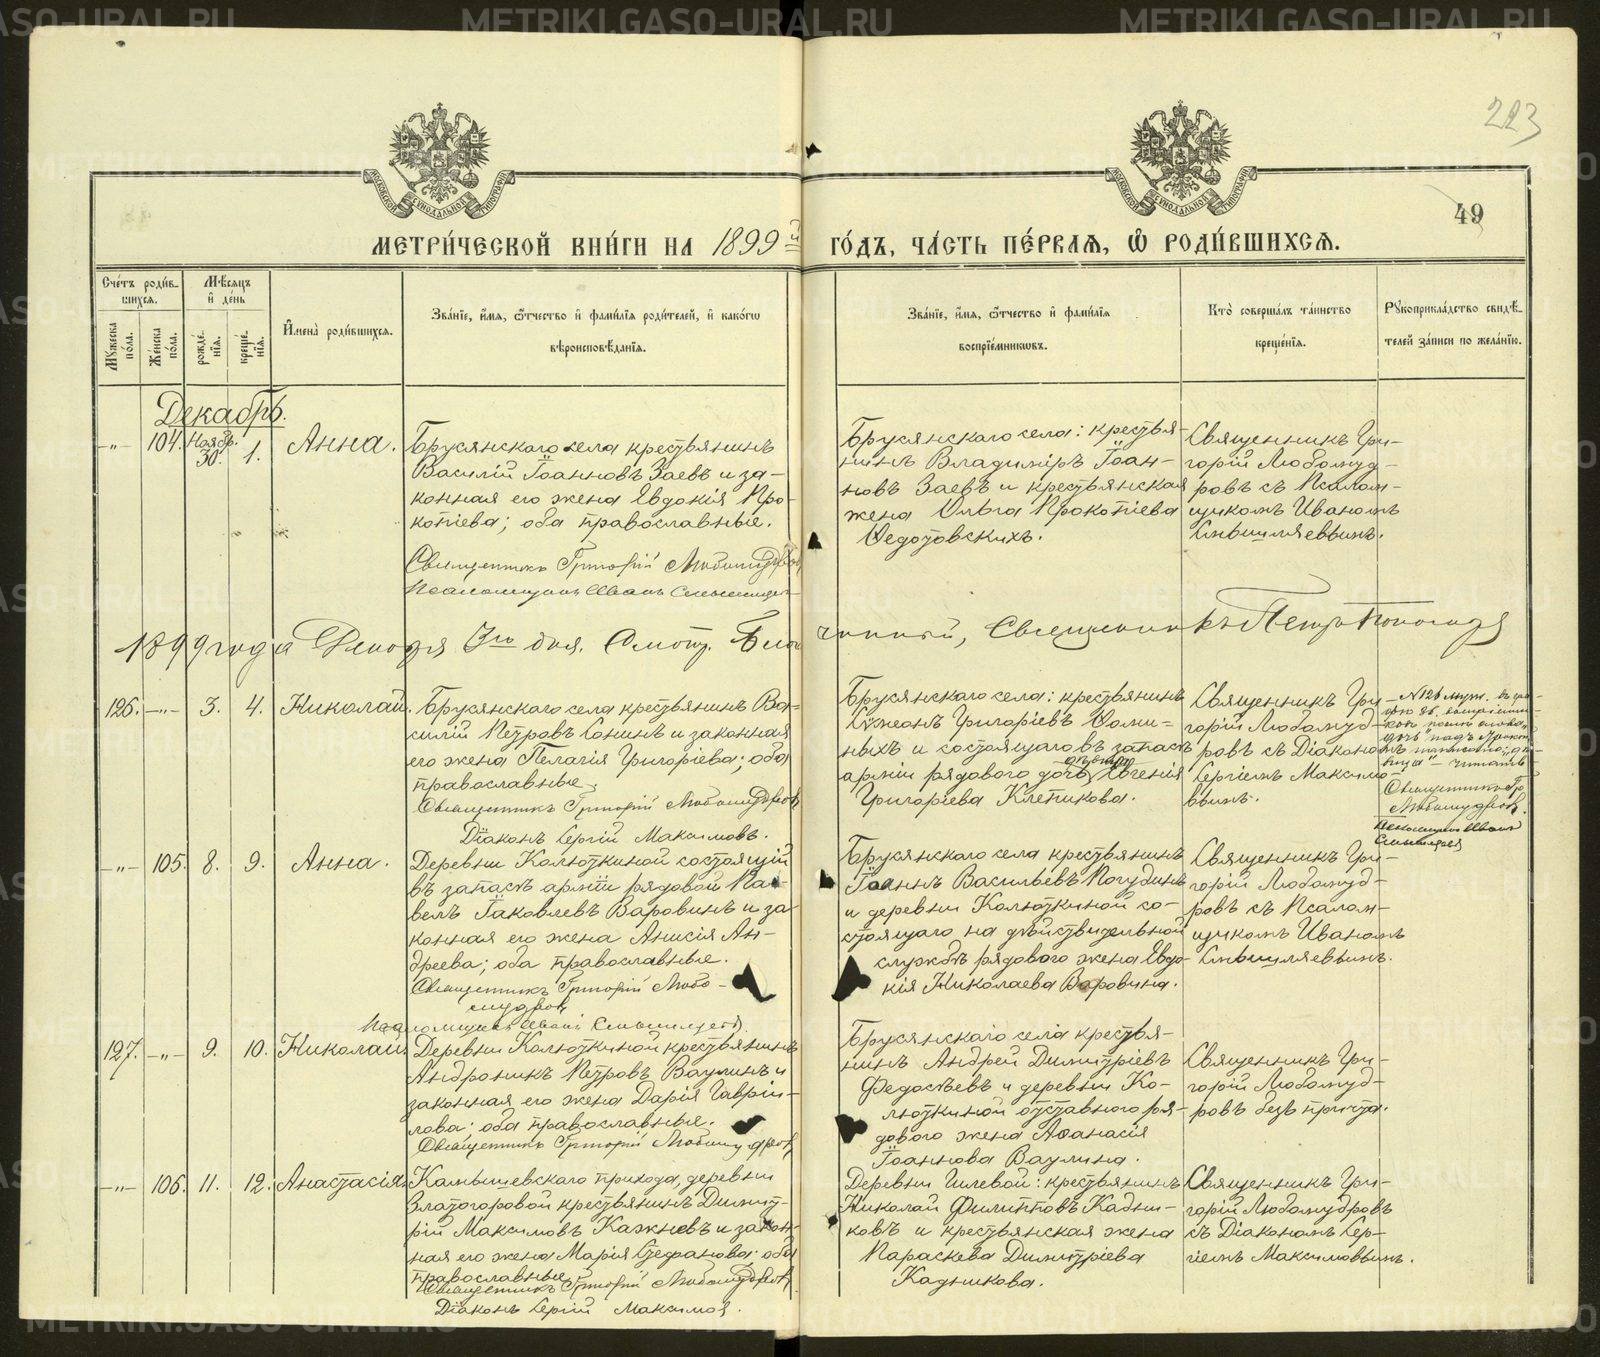 METRIKI.GASO-URAL.RU
223
МОСКОВСКОЙ СѴНОДАЛЬНОЙ ТИПОГРАФІИ
МОСКОВСКОЙ СѴНОДАЛЬНОЙ ТИПОГРАФІИ
49
МЕТРИ́ЧЕСКОЙ КНИ́ГИ НА 1899й ГО́ДЪ, ЧА́СТЬ ПЕ́РВАЯ, Ѡ РОДИ́ВШИХСЯ.
Сче́тъ роди́в-
шихся.
Мꙋжеска по́ла.
Же́нска по́ла.
Мѣ́сяцъ и҆ де́нь
рожде́нїя.
креще́нїя.
И҆мена̀ роди́вшихся.
Зва́нїе, и҆́мя, ѻ҆́тчество и҆ фамі́лїа роди́телей, и҆ како́гѡ
вѣроисповѣ́данїя.
Зва́нїе, и҆́мя, ѻ҆́тчество и҆ фамі́лїа
воспрїе́мникѡвъ.
Кто̀ соверша́лъ та́инство
креще́нїя.
Рꙋкоприкла́дство свидѣ́-
телей за́писи по жела́нїю.
Декабрь.
-"- 104. Ноябр. 30. 1. Анна.
Брусянскаго села крестьянинъ
Василій Іоанновъ Заевъ и за-
конная его жена Евдокія Про-
копіева; оба православные.
Священникъ Григорій Любомудровъ
Псаломщикъ Иванъ
Брусянскаго села: крестья-
нинъ Владиміръ Іоан-
новъ Заевъ и крестьянская
жена Ольга Прокопіева
Ѳедотовскихъ.
Священникъ Гри-
горій Любомуд-
ровъ съ Псалом-
щикомъ Иваномъ
1899 года Декабря 3го дня. Смотр. Благочинный, Священникъ Петръ
126. -"- 3. 4. Николай.
Брусянскаго села крестьянинъ Ва-
силій Петровъ Сонинъ и законная
его жена Пелагія Григоріева; оба
православные.
Священникъ Григорій Любомудровъ
Діаконъ Сергій Максимовъ.
Брусянскаго села: крестьянинъ
Симеонъ Григоріевъ
ныхъ и состоящаго въ запасѣ
арміи рядового дочь, дѣвица Евгенія
Григоріева Клепикова.
Священникъ Гри-
горій Любомуд-
ровъ съ Діакономъ
Сергіемъ Максимо-
вымъ.
№ 126 муж. въ гра-
"дочь" надъ
"дѣ-
вица" - читать
Священникъ Гр.
Любомудровъ.
Псаломщикъ Иванъ
-"- 105. 8. 9. Анна.
Деревни Колюткиной состоящій
въ запасѣ арміи рядовой Па-
велъ Іаковлевъ Варовинъ и за-
конная его жена Анисія Ан-
дреева; оба православные.
Священникъ Григорій Любо-
мудровъ
Псаломщикъ Иванъ
Брусянскаго села крестьянинъ
Іоаннъ Васильевъ Погудинъ
и деревни Колюткиной со-
стоящаго на дѣйствительной
службѣ рядового жена Евдо-
кія Николаева Варовина.
Священникъ Гри-
горій Любомуд-
ровъ съ Псалом-
щикомъ Иваномъ
127. -"- 9. 10. Николай.
Деревни Колюткиной крестьянинъ
Андроникъ Петровъ Ваулинъ и
законная его жена Дарія Гаврі-
лова; оба православные.
Священникъ Григорій Любомудровъ
Брусянскаго села крестья-
нинъ Андрей Димитріевъ
Ѳедосѣевъ и деревни Ко-
люткиной отставного ря-
дового жена Аѳанасія
Іоаннова Ваулина.
Священникъ Гри-
горій Любомуд-
ровъ безъ причта.
-"- 106. 11. 12. Анастасія.
Камышевскаго прихода, деревни
Златогоровой крестьянинъ Димит-
рій Максимовъ Кажневъ и закон-
ная его жена Марія Стефанова: оба
православные.
Священникъ Григорій Любомудровъ
Діаконъ Сергій Максимовъ.
Деревни Гилевой: крестьянинъ
Николай Филипповъ Кадни-
ковъ и крестьянская жена
Параскева Димитріева
Кадникова.
Священникъ Гри-
горій Любомудровъ
съ Діакономъ Сер-
гіемъ Максимовымъ.